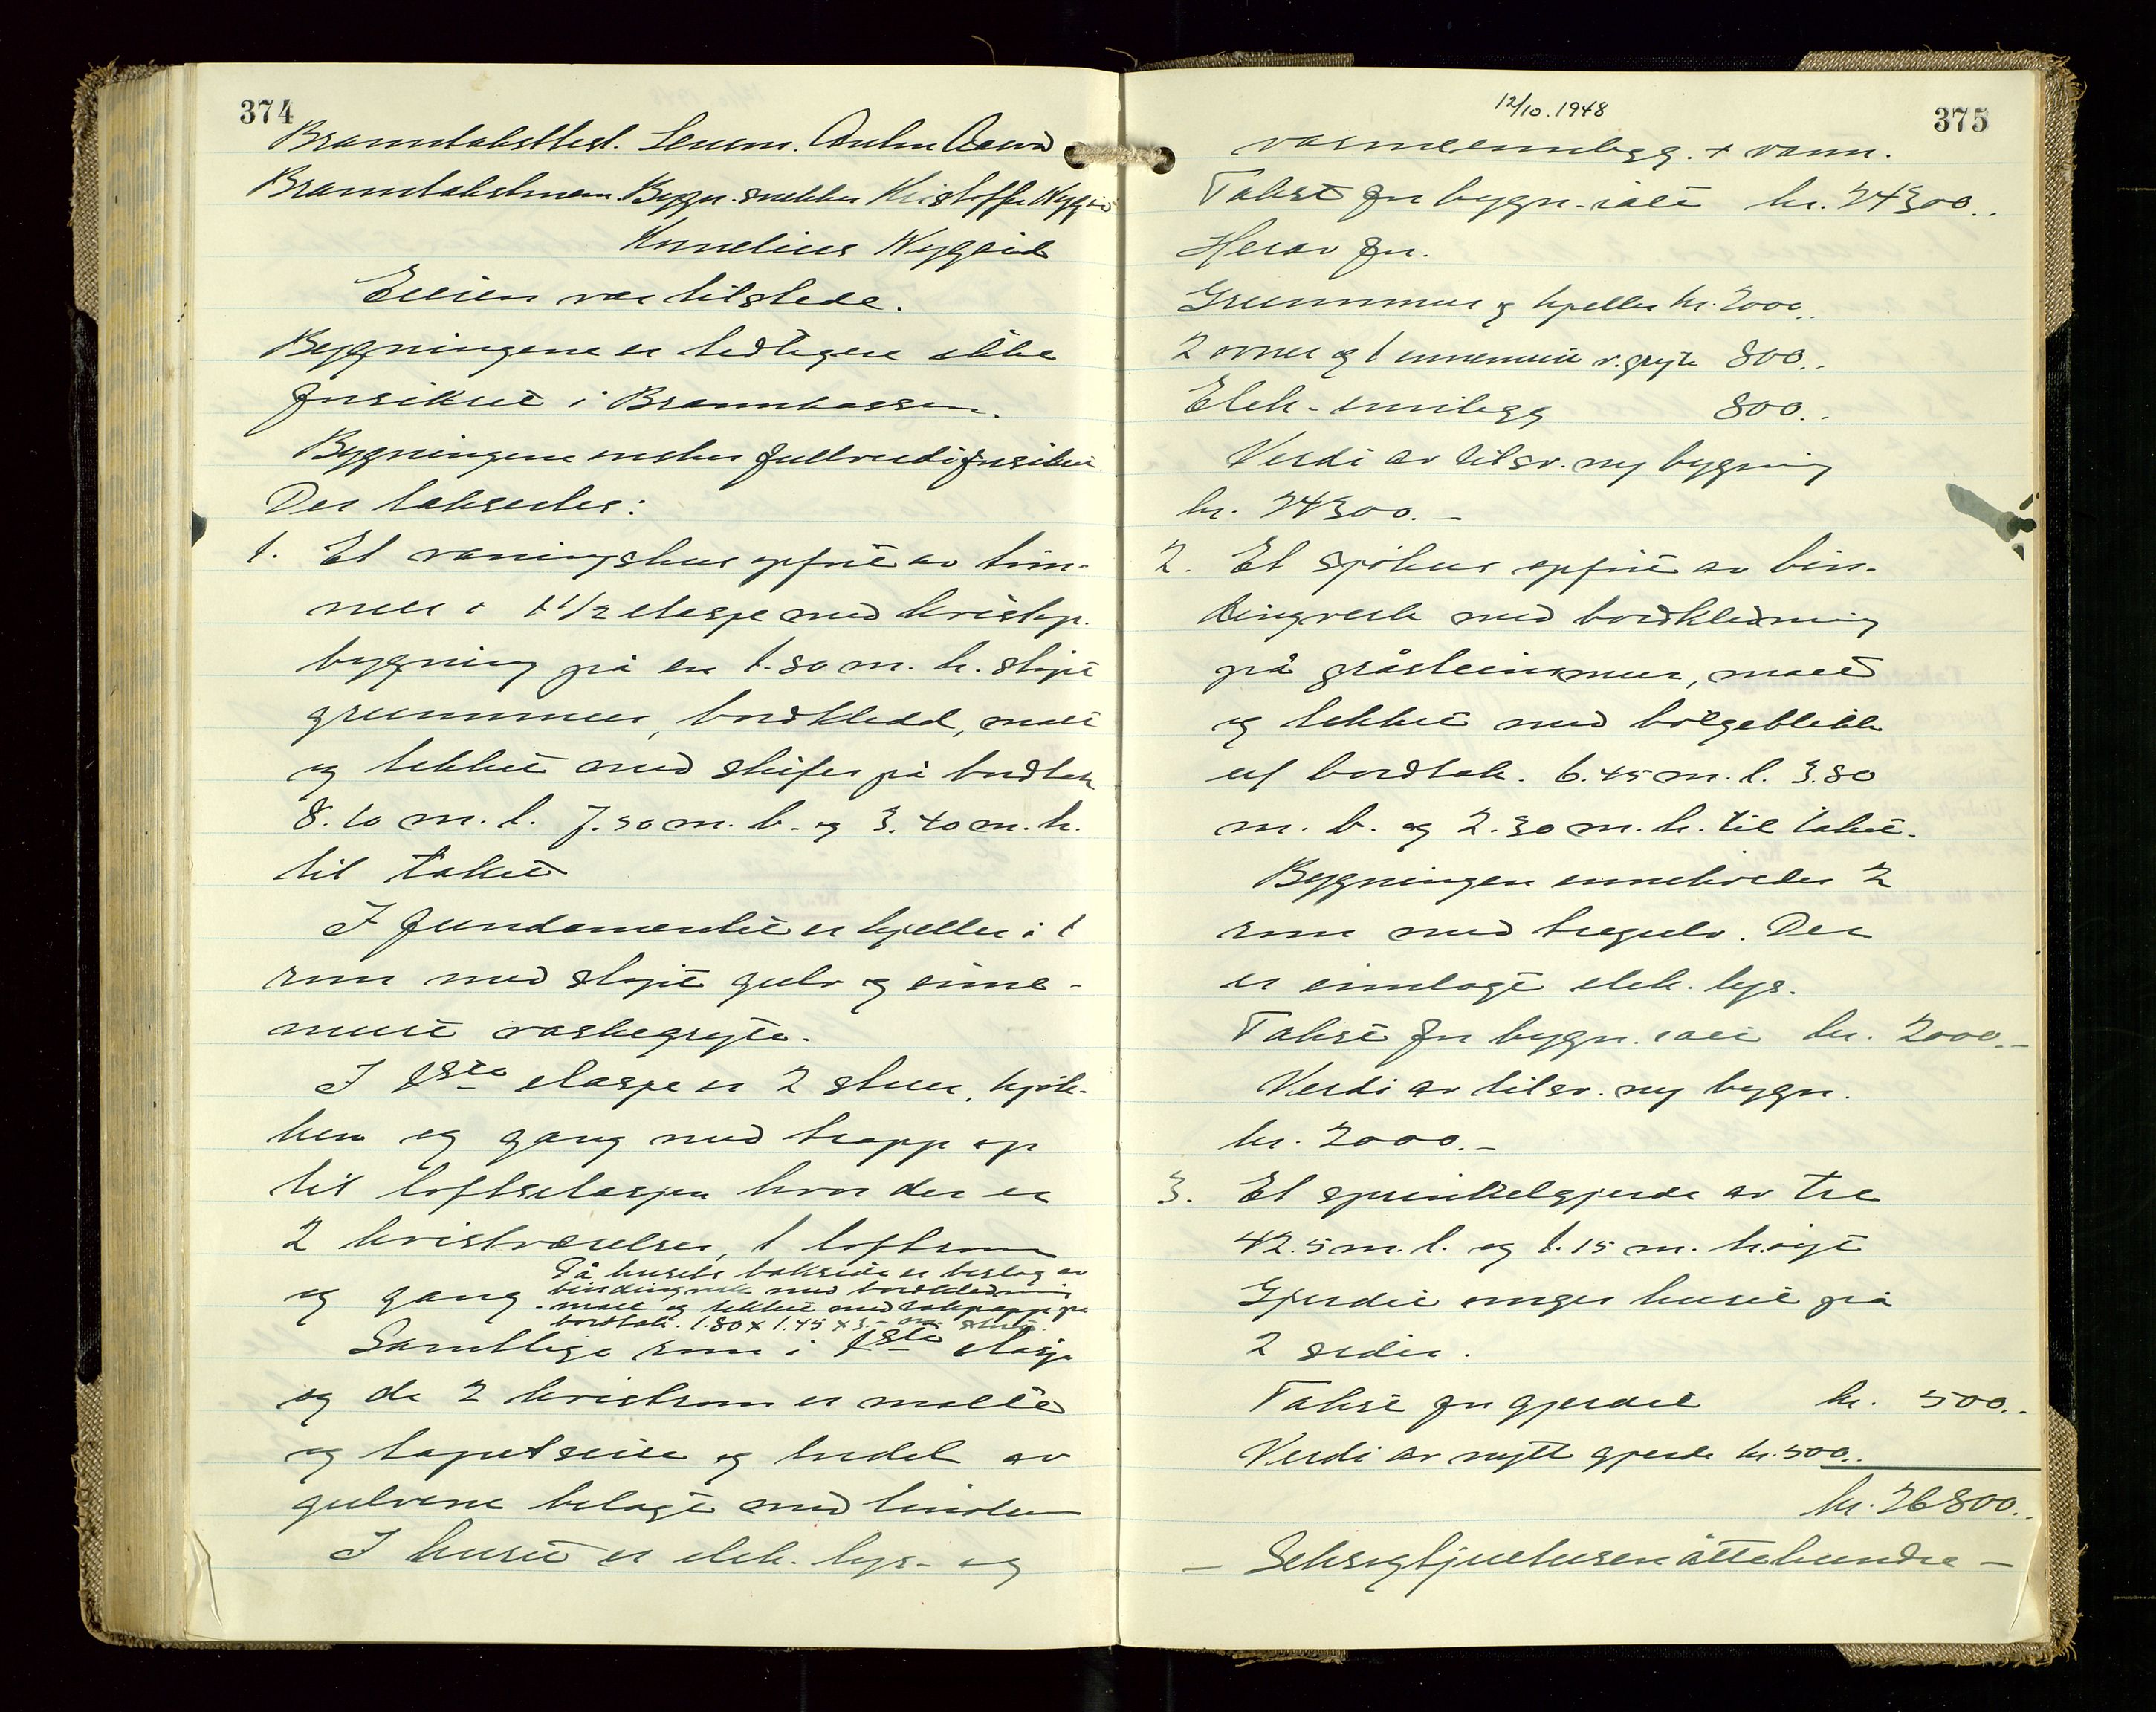 374
Branntakstbest. Lensm. Anton Aarvø
Branntakstmenn. Bygn.snekker Kristoffer Nygård
Kornelius Nyggård
Eieren var tilstede.
Bygningene er tidligere ikke
forsikret i Brannkassen.
Bygningene ønskes fullverdiforsikret
Der takseres:
1. Et våningshus opført av tøm-
mer i 1 1/2 etasje med kvistop-
bygning på en 1.80 m. h. støpt
grunnmur, bordkledd, malt
og tekket med skifer på bordtak
8.10 m. l. 7.50 m. b. og 3.40 m. h.
til taket
I fundamentet er kjeller i 1
rum med støpt gulv og inne-
muret vaskegryte.
I 1ste etasje er 2 stuer, kjøk-
ken og gang med trapp op
til loftsetasjen hvor der er
2 kvistværelser, 1 loftsrom
og gang På husets bakside er beslag av
bindingverk med bordkledning
malt og tekket med takpapp på
bordtak. 1.80 x 1.45 x 3.-
Samtlige rum i 1ste etasje
og de 2 kvistrom er malte
og tapetserte og endel av
gulvene belagt med linoleum
I huset er elek. lys- og
12/10.1948
375
varmeinnlegg. + vann.
Takst for bygn. ialt kr. 24300.-
Herav for.
Grunnmur og kjeller kr. 2000.-
2 ovner og 1 innemuret v.gryte 800.-
Elek-innlegg 800.-
Verdi av tilsv. ny bygning
kr. 24300.-
2. Et sjøhus opført av bin-
dingverk med bordkledning
på gråsteinsmur, malt
og tekket med bølgeblikk
på bordtak. 6.45 m. l. 3.80
m. b. og 2.30 m. h. til taket.
Bygningen inneholder 2
rum med tregulv. Der
er innlagt elek. lys.
Takst for bygn. ialt kr. 2000.-
Verdi av tilsv. ny bygn.
kr. 2000.-
3. Et sprinkelgjerde av tre
42.5 m. l. og 1.15 m. høyt
Gjerdet omger huset på
2 sider.
Takst for gjerdet kr. 500.-
Verdi av nytt gjerde kr. 500.-
kr. 26800.-
- Seksogtjuetusenåttehundre -